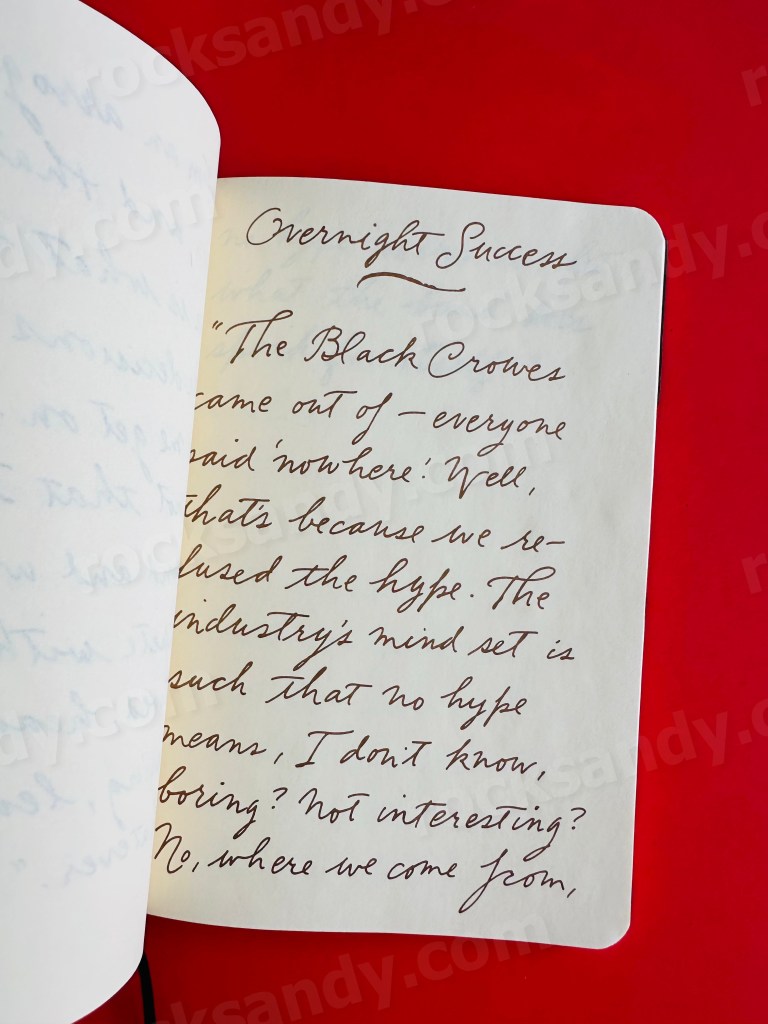 Overnight Success
"The Black Crowes
came out of — everyone
said 'nowhere.' Well,
that's because we re-
fused the hype. The
industry's mind set is
such that no hype
means, I don't know,
boring? Not interesting?
No, where we come from,
rocksandy.com